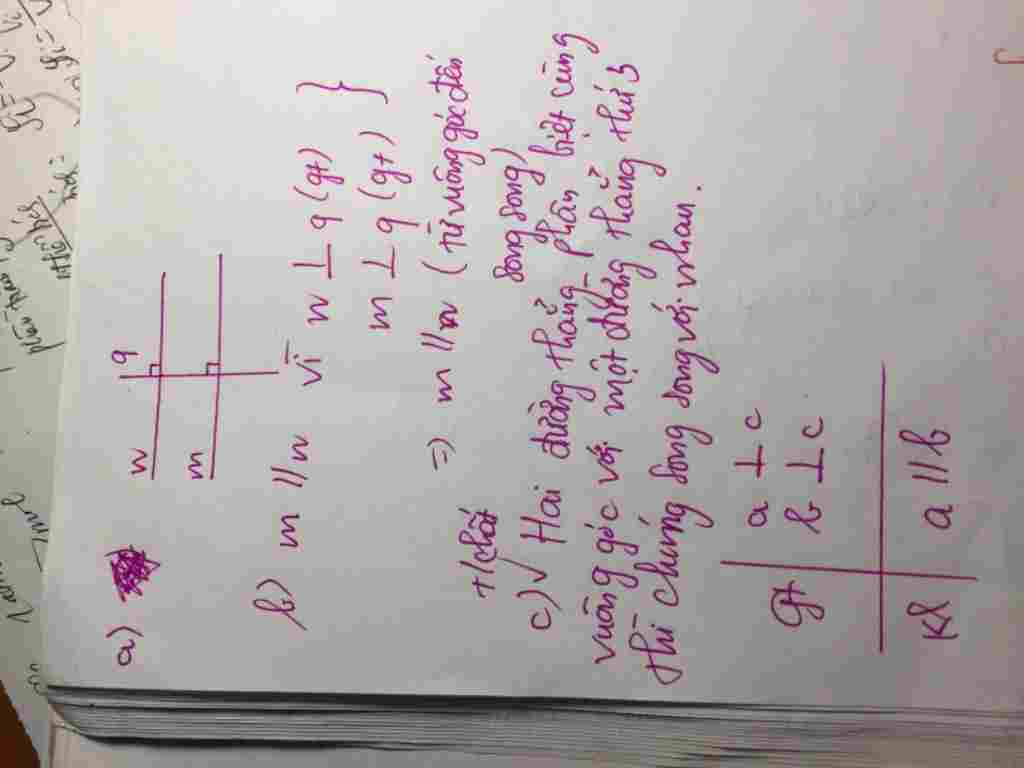 a)
q
n
m
b) m // n vì n ⊥ q (gt) }
m ⊥ q (gt)
=> m // n (từ vuông góc đến
song song)
t/chất
c) √ Hai đường thẳng phân biệt cùng
vuông góc với một đường thẳng thứ 3
thì chúng song song với nhau.
gt a ⊥ c
b ⊥ c
kl a // b